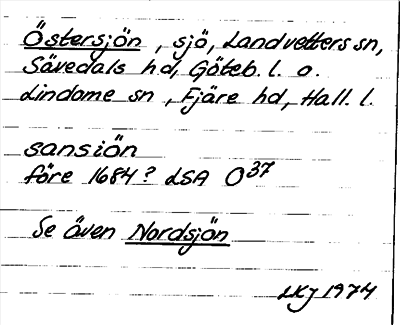 Östersjön, sjö, Landvetters sn,
Sävedals hd, Göteb. l. o.
Lindome sn, Fjäre hd, Hall. l.
sansiön
före 1684? LSA O37
Se även Nordsjön
LKJ 1974